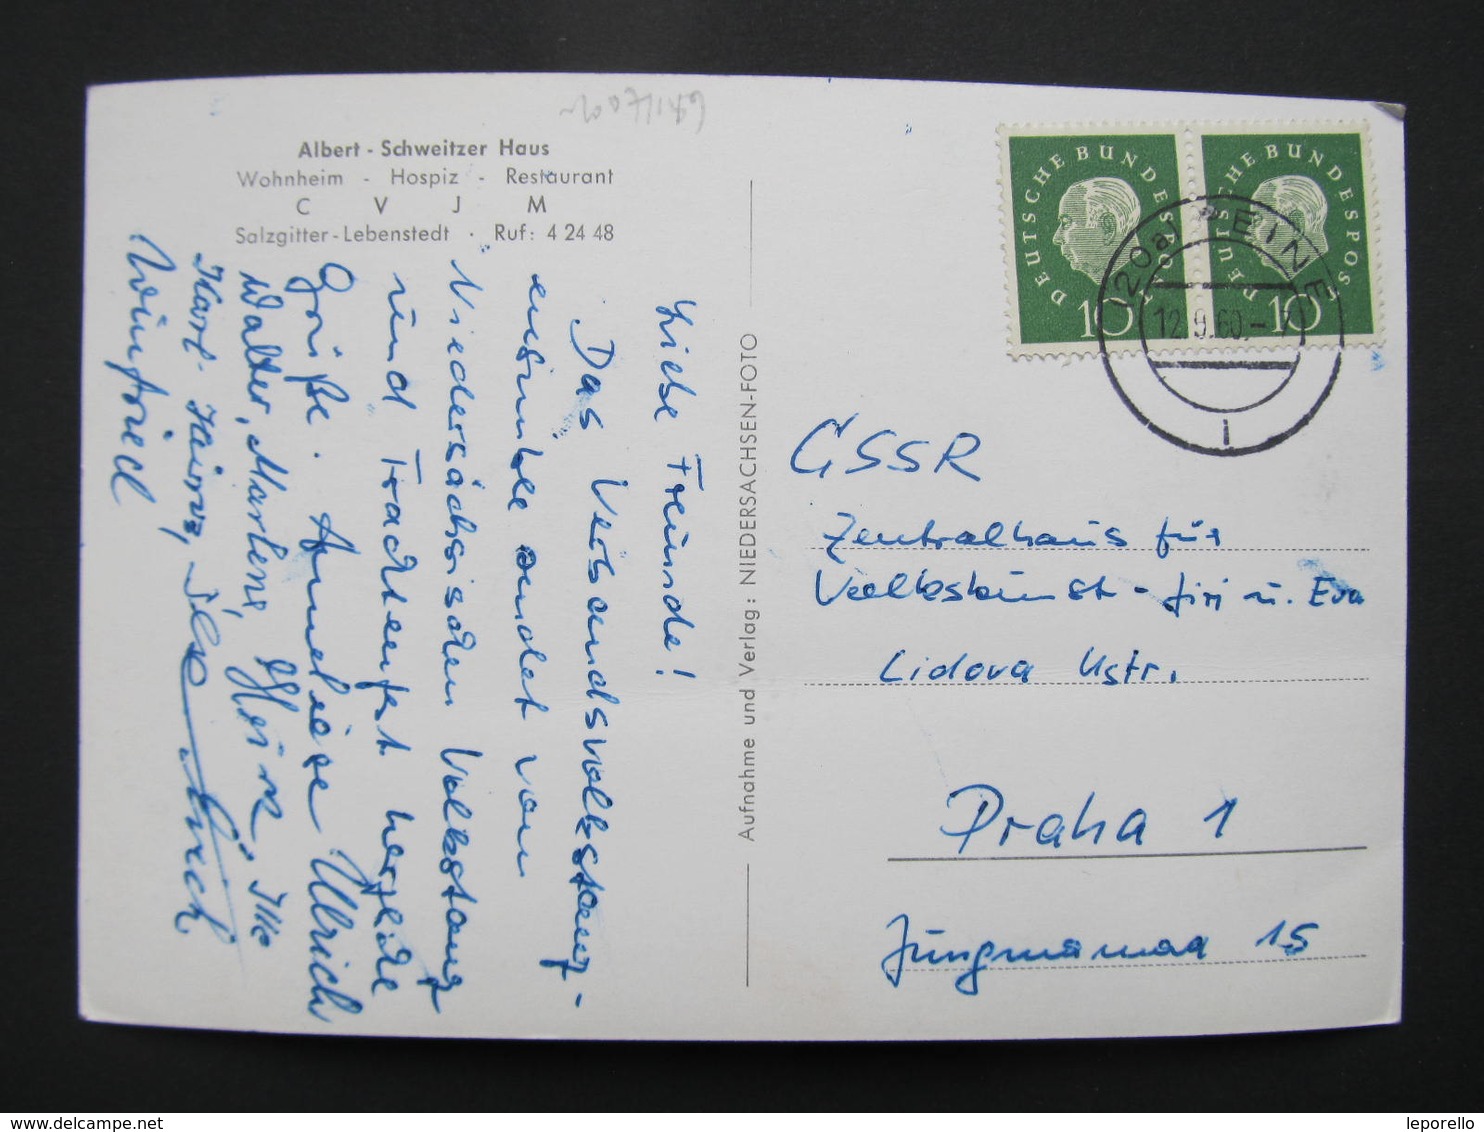 Albert - Schweitzer Haus
Wohnheim - Hospiz - Restaurant
C V J M
Salzgitter - Lebenstedt · Ruf: 4 24 48
Liebe Freunde!
Das Versandsvolkstanz-
ensemble sendet von
Niedersächsischem Volkstanz
und Trachtenfest herzliche
Grüße. Anneliese Ulrich
Walter, Marlene, Heinz, Ilse
Karl-Heinz, Ilse
Winfried
Aufnahme und Verlag: NIEDERSACHSEN-FOTO
DEUTSCHE BUNDESPOST
10
DEUTSCHE BUNDESPOST
10
(20a) PEINE
12.9.60.-7
i
ČSSR
Zentralhaus für
Volkskunst - Jiri u. Eva
Lidova Ustr.
Praha 1
Jungmanova 15
leporello
delcampe.net